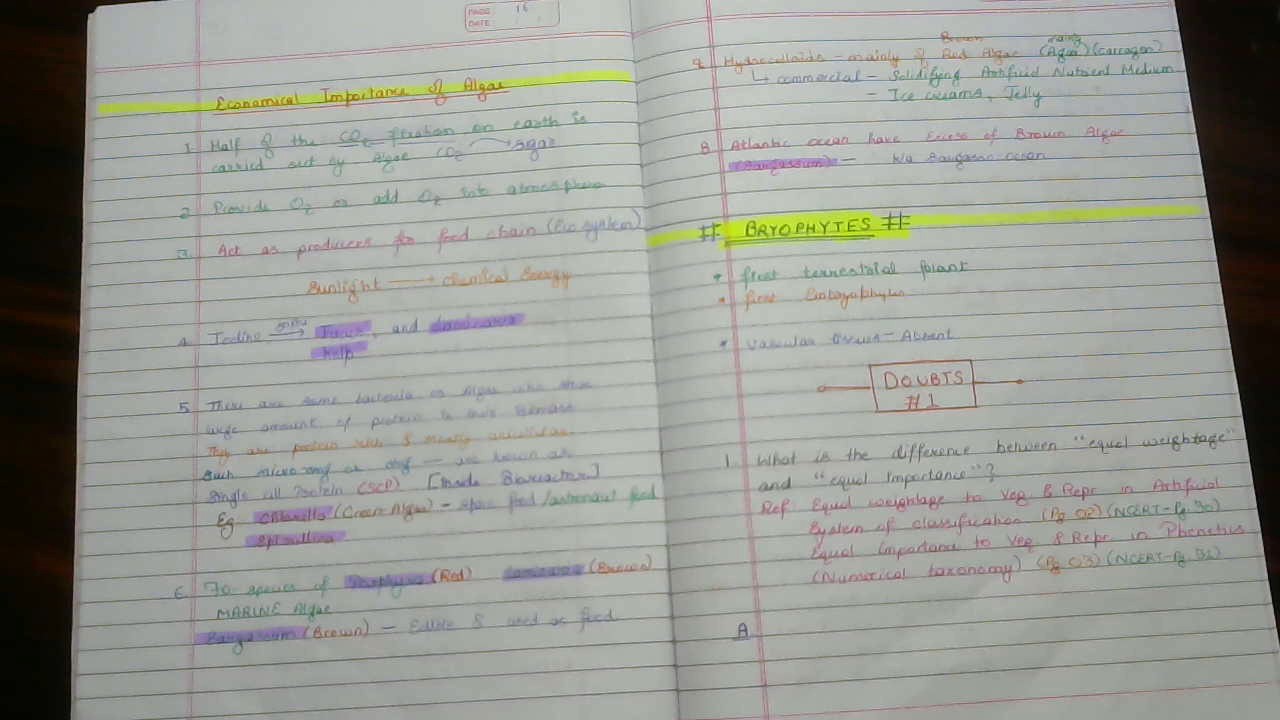 PAGE: 16
DATE:
Economical Importance of Algae
1. Half of the CO2 fixation on earth is
carried out by Algae CO2 → Sugar
2. Provide O2 or add O2 into atmosphere
3. Act as producers for food chain (Eco system)
Sunlight → chemical Energy
4. Iodine → and
Kelp
5. There are some bacteria or Algae who
large amount of protein in their Biomass
They are protein rich & mainly unicellular
Such micro org or org — are known as
Single cell Protein (SCP) [Inside Bioreactor]
Eg. Chlorella (Green Algae) - space food / astronaut food
Spirullina
6. 70 species of Porphyra (Red) Laminaria (Brown)
MARINE Algae
Sargassum (Brown) — Edible & used as food
Brown mainly
Hydrocolloids - mainly of Red Algae (Agar) (carragen)
↳ commercial - Solidifying Artificial Nutrient Medium
- Ice creams, Jelly
8. Atlantic ocean have Excess of Brown Algae
(Sargassum) - k/a Sargasso ocean
# BRYOPHYTES #
* first terrestrial plant
* first Embryophytes
* Vascular tissues - Absent
DOUBTS
#1
1. What is the difference between "equal weightage"
and "equal Importance"?
Ref Equal weightage to Veg & Repr in Artificial
System of classification (Pg 02) (NCERT - Pg 30)
Equal Importance to Veg & Repr in Phenetics
(Numerical taxonomy) (Pg 03) (NCERT - Pg 31)
A